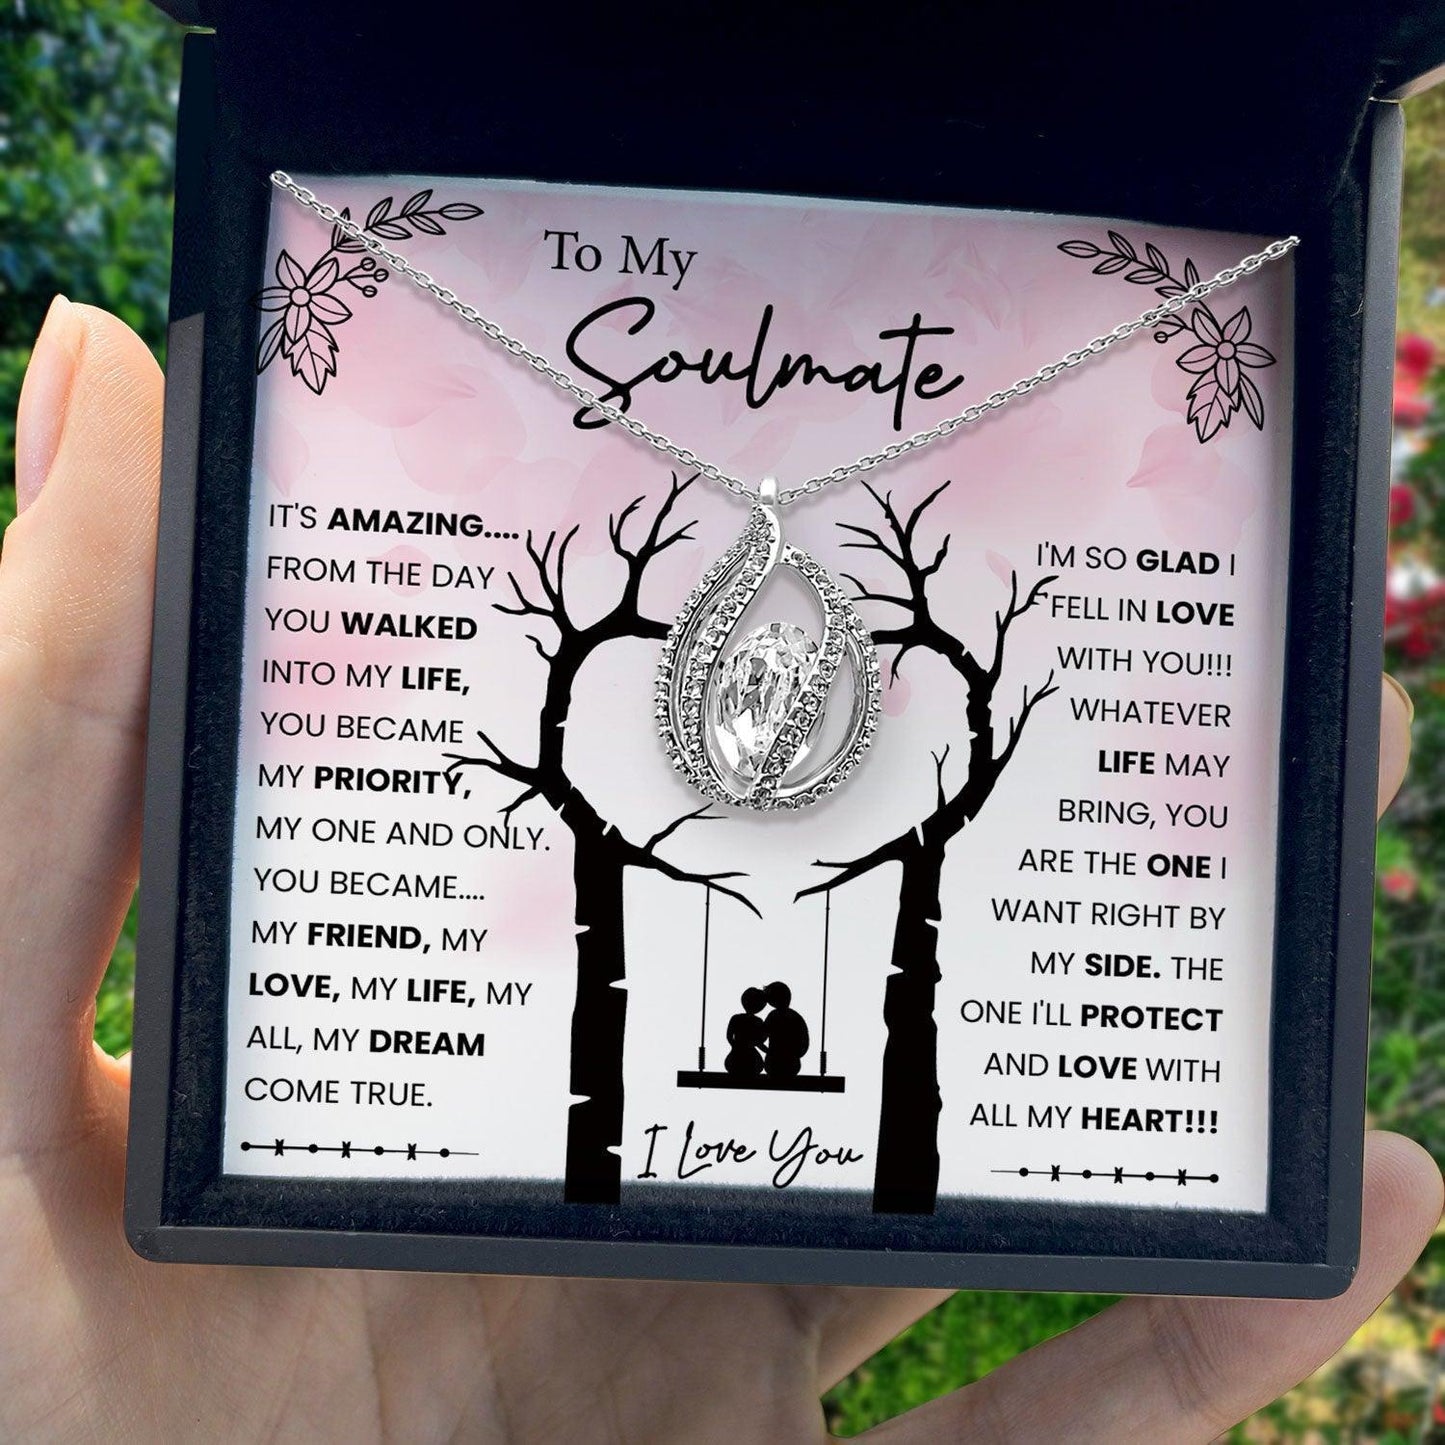 To My
Soulmate
IT'S AMAZING....
FROM THE DAY
YOU WALKED
INTO MY LIFE,
YOU BECAME
MY PRIORITY,
MY ONE AND ONLY.
YOU BECAME....
MY FRIEND, MY
LOVE, MY LIFE, MY
ALL, MY DREAM
COME TRUE.
I'M SO GLAD I
FELL IN LOVE
WITH YOU!!!
WHATEVER
LIFE MAY
BRING, YOU
ARE THE ONE I
WANT RIGHT BY
MY SIDE. THE
ONE I'LL PROTECT
AND LOVE WITH
ALL MY HEART!!!
I Love You